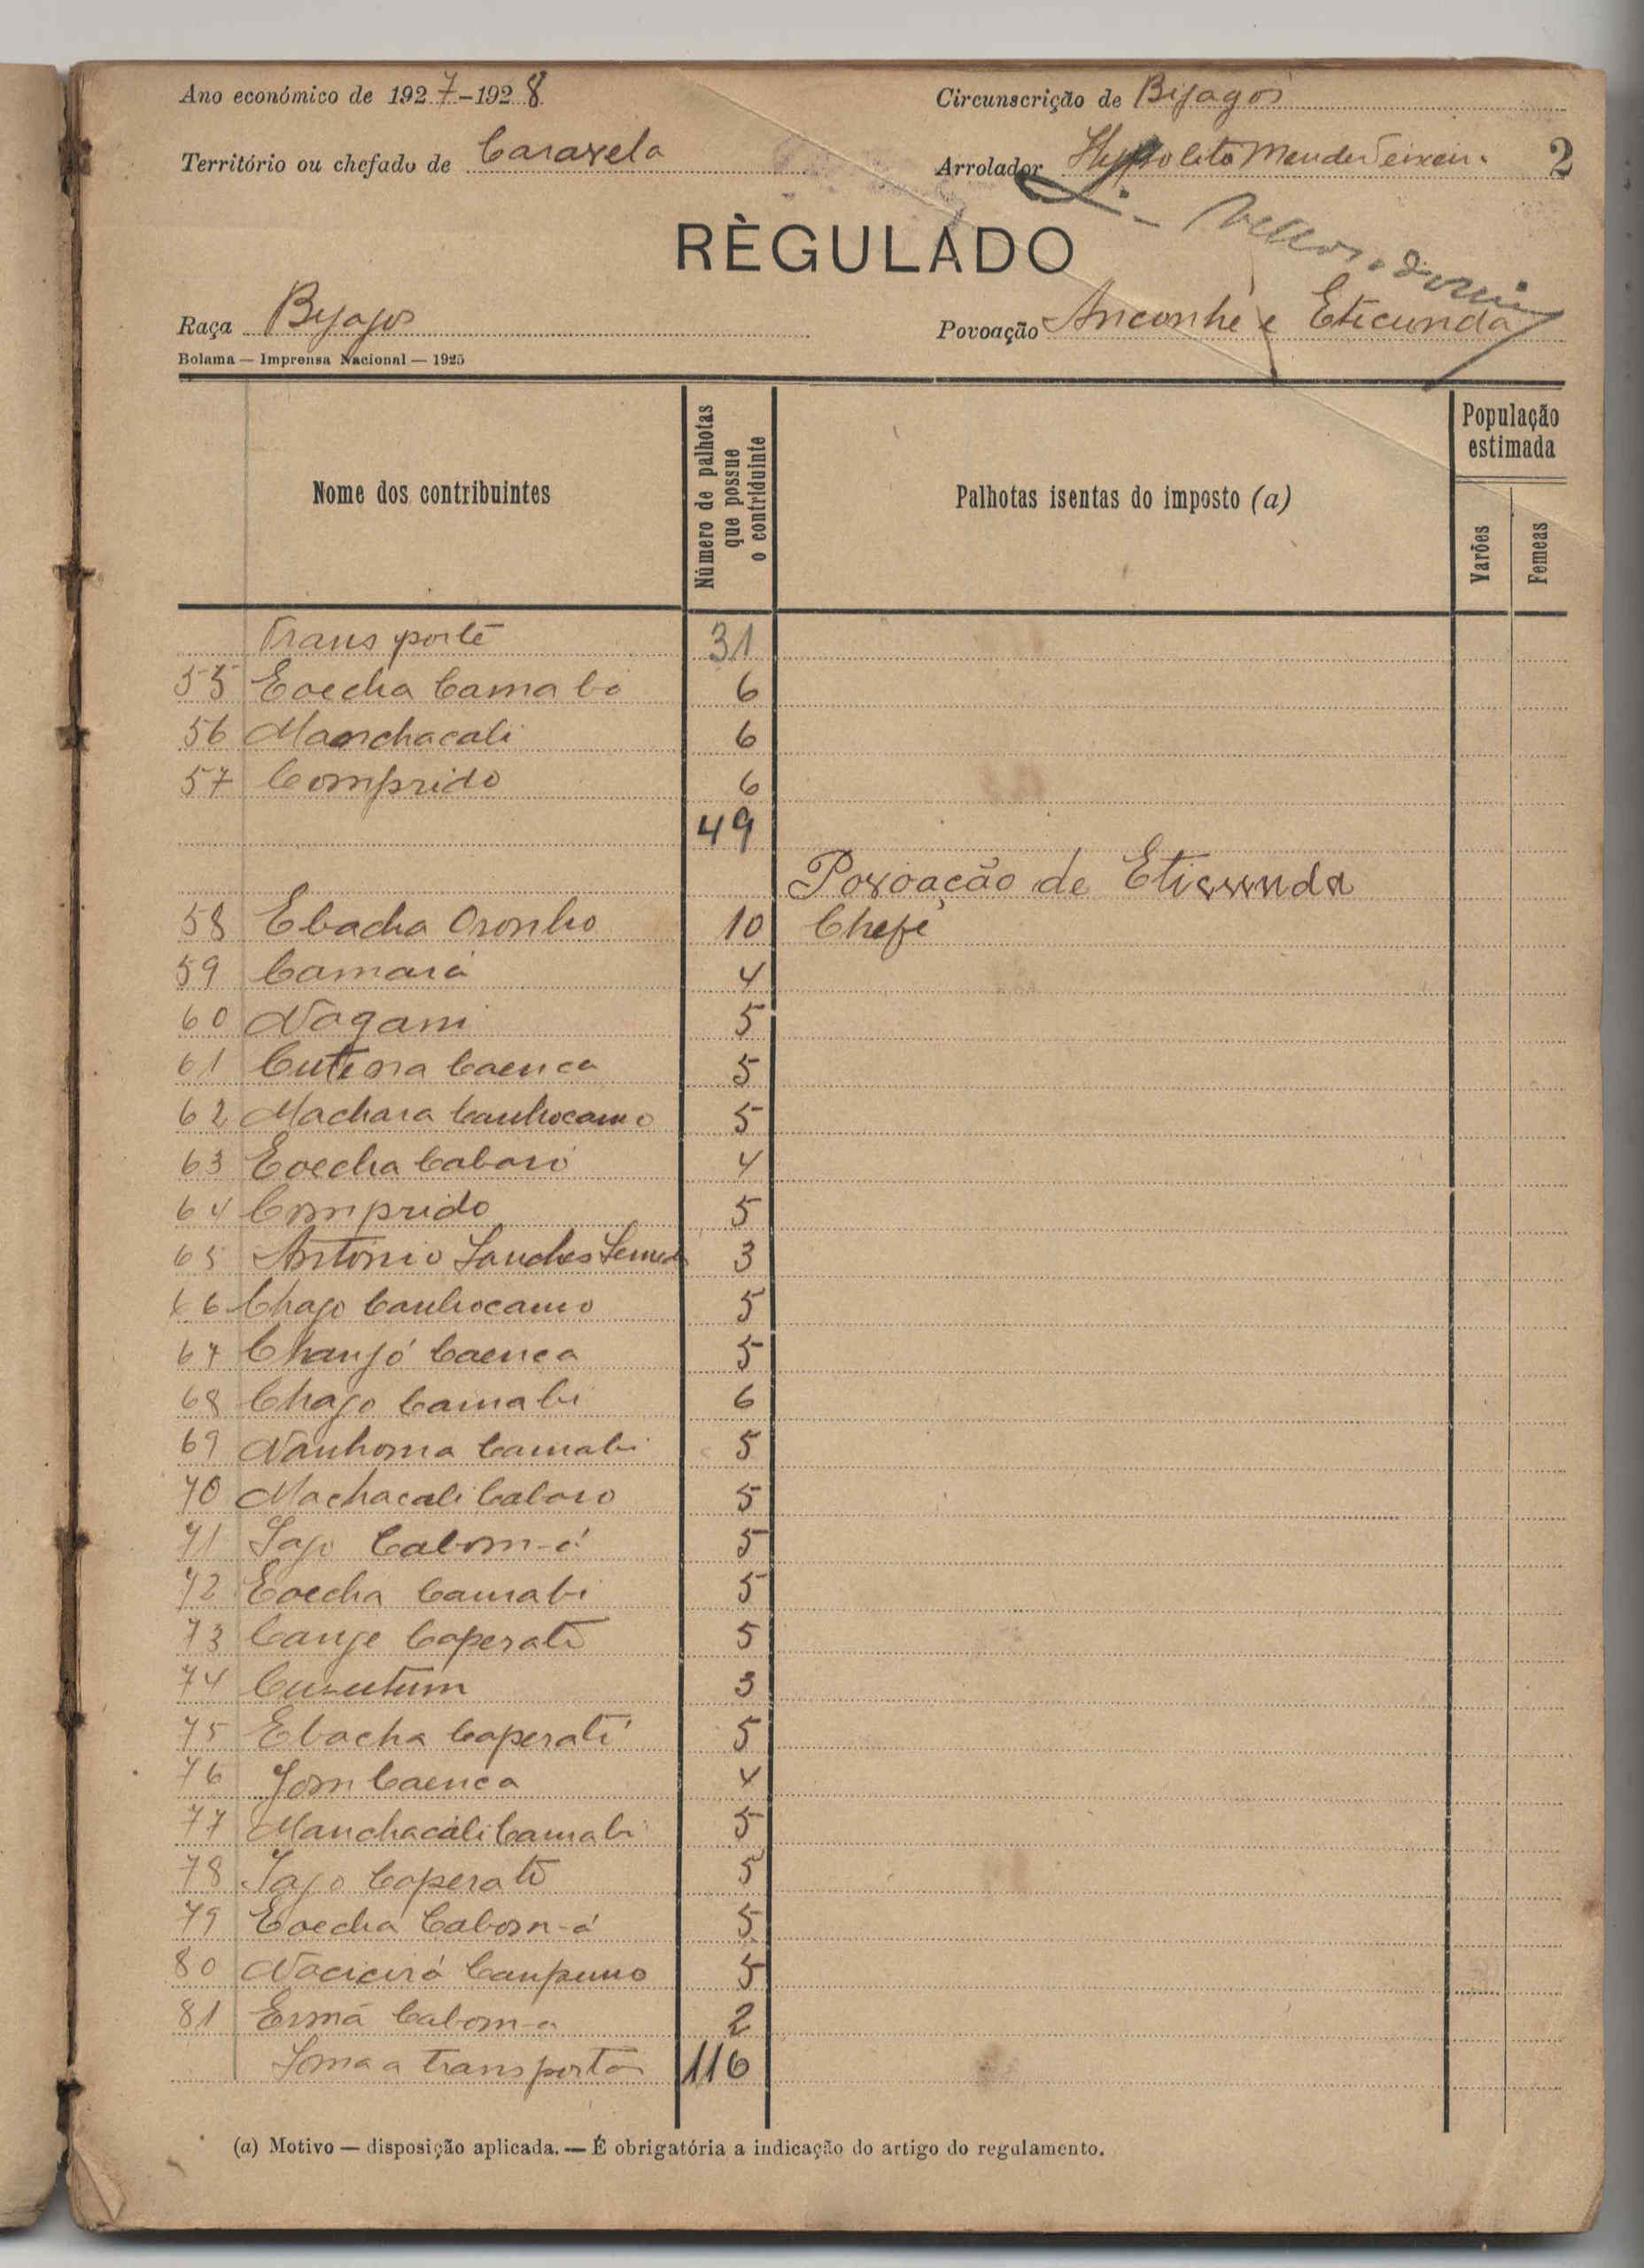 Ano económico de 1927-1928
Circunscrição de Bijagós
Território ou chefado de Caravela
Arrolador Hyppolito Mendes Teixeira
2
RÈGULADO
Raça Bijagos
Povoação Anconhe e Eticunda
Bolama — Imprensa Nacional — 1925
Nome dos contribuintes
Número de palhotas que possue o contribuinte
Palhotas isentas do imposto (a)
População estimada
Varões
Femeas
Transporte 31
55 Eoecha Camabi 6
56 Manchacali 6
57 Comprido 6
49
Povoação de Eticunda
58 Ebacha Oronho 10 Chefe
59 Camará 4
60 Nagani 5
61 Cutena Caenca 5
62 Machara Canhocamo 5
63 Eoecha Caboró 4
64 Comprido 5
65 António Sanches Semedo 3
66 Chago Canhocamo 5
67 Chanjó Caenca 5
68 Chago Camabi 6
69 Nanhoma Camabi 5
70 Machacali Caboro 5
71 Iago Cabom-á 5
72 Eoecha Camabi 5
73 Cange Caperati 5
74 3
75 Ebacha Caperati 5
76 Jom Caenca 4
77 Manchacáli Camabi 5
78 Iago Caperati 5
79 Eoecha Cabom-á 5
80 5
81 Ermá Cabom-a 2
Soma a transportar 116
(a) Motivo — disposição aplicada. — É obrigatória a indicação do artigo do regulamento.